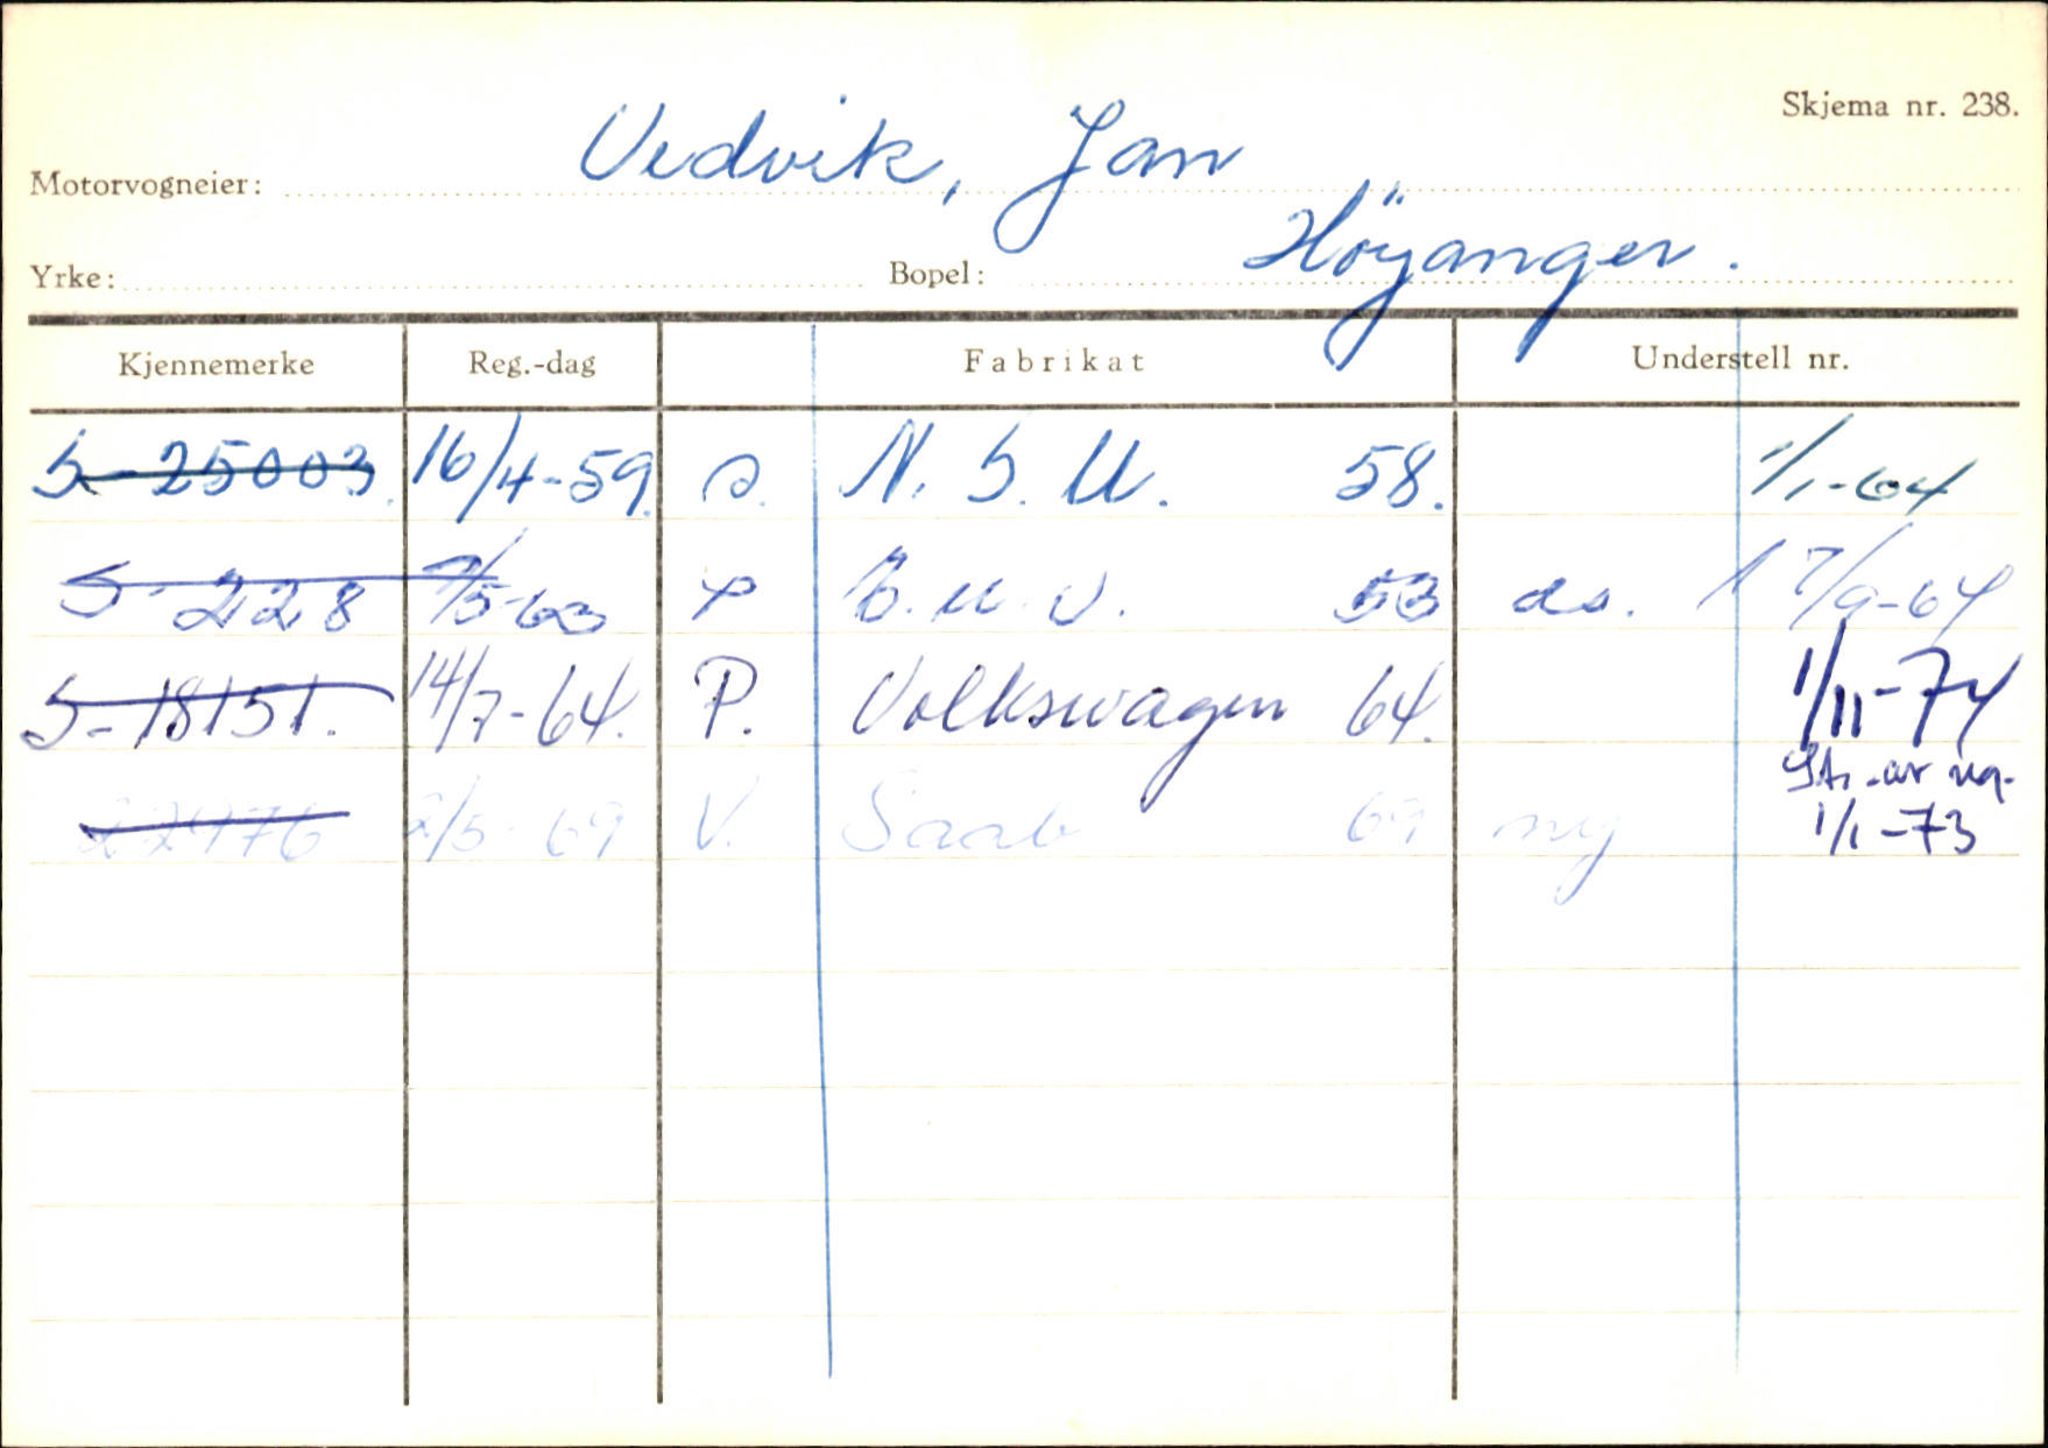 Skjema nr. 238.
Motorvogneier: Vedvik, Jan
Yrke: Bopel: Höyanger.
Kjennemerke Reg.-dag Fabrikat Understell nr.
S-25003. 16/4-59. N. S. U. 58. 1/1-64
S-228 7/5-63 P 53 do. 17/9-64
S-18151. 14/7-64. P. Volkswagen 64. 1/11-74
1/1-73
22476 2/5-69 V. Saab 69 ny